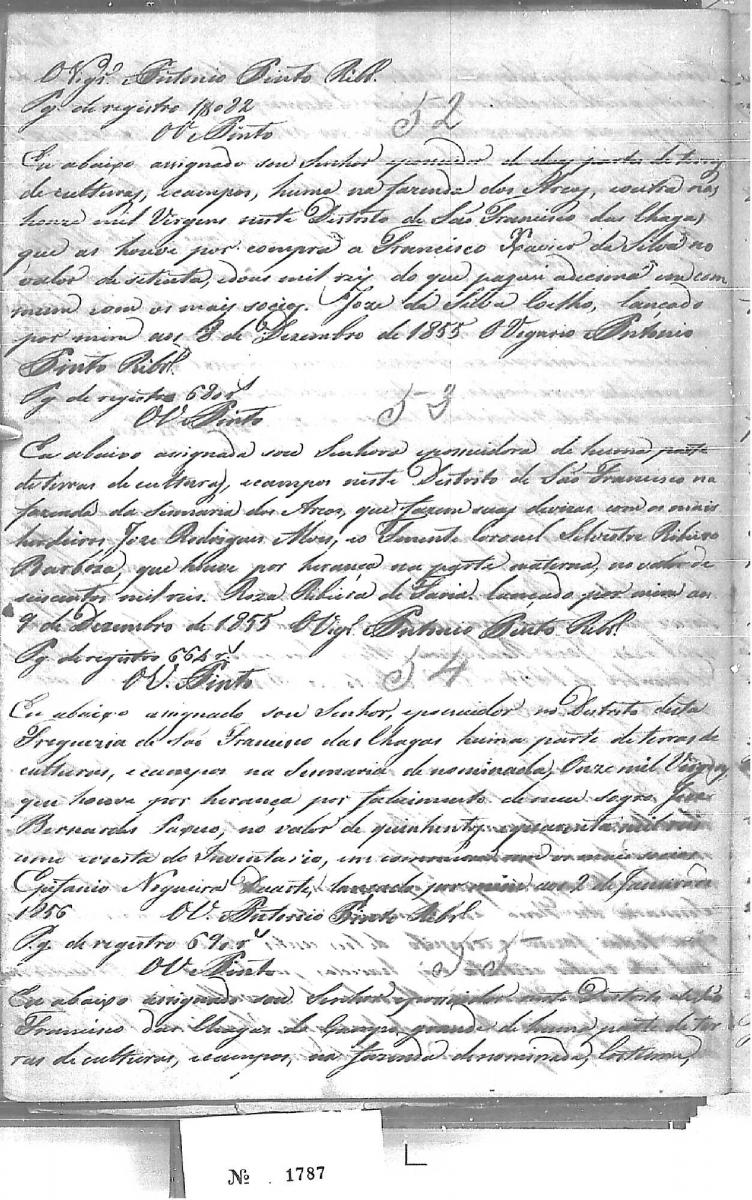 O Vigrº Antonio Pinto Ribrº
Pg. de registro 1$022
O V. Pinto
52
Eu abaixo assignado sou Senhor epossuidor de duas partes de terras
de culturas, ecampos, huma na fazenda dos Arcos, eoutra nas
honze mil Virgens neste Distrito de São Francisco das Chagas,
que as houve por compra a Francisco Xavier da Silva no
valor de setenta, edous mil reis do que paguei adecima, em com
mum com os mais socios. Joze da Silva Coelho, lançado
por mim aos 8 de Dezembro de 1855 O Vigario Antonio
Pinto Ribrº
Pg. de registro 680 rs
O V. Pinto
53
Eu abaixo asignada sou Senhora epossuidora de huma parte
de terras de culturas, ecampos neste Distrito de São Francisco na
fazenda da Semaria dos Arcos, que fazem suas devizas com os mais
herdeiros Joze Rodrigues Alves, eo Tenente Coronel Silvestre Ribeiro
Barboza, que houve por herança na parte materna, no valor de
seiscentos mil reis. Roza Ribeira de Faria. lançado por mim ao
9 de Dezembro de 1855 O Vigrº Antonio Pinto Ribrº
Pg. de registro 664 rs
O V. Pinto
54
Eu abaixo asignado sou Senhor, epossuidor no Distrito desta
Freguezia de São Francisco das Chagas huma parte de terras de
culturas, ecampos na Semaria denominada, Onze mil Virgens
que houve por herança por falicimento de meu sogro Joze
Bernardes no valor de quinhentos equarenta mil reis
como consta do Inventario, em commum com os mais socios
Epifanio Nogueira Duarte, lançado por mim aos 2 de Janeiro de
1856 O V. Antonio Pinto Ribrº
Pg. de registro 690 rs
O V. Pinto
55
Eu abaixo assignado sou Senhor epossuidor neste Distrito de São
Francisco das Chagas do Campo grande de huma parte de ter
ras de culturas, ecampos, na fazenda denominada, Costume,
Nº 1787